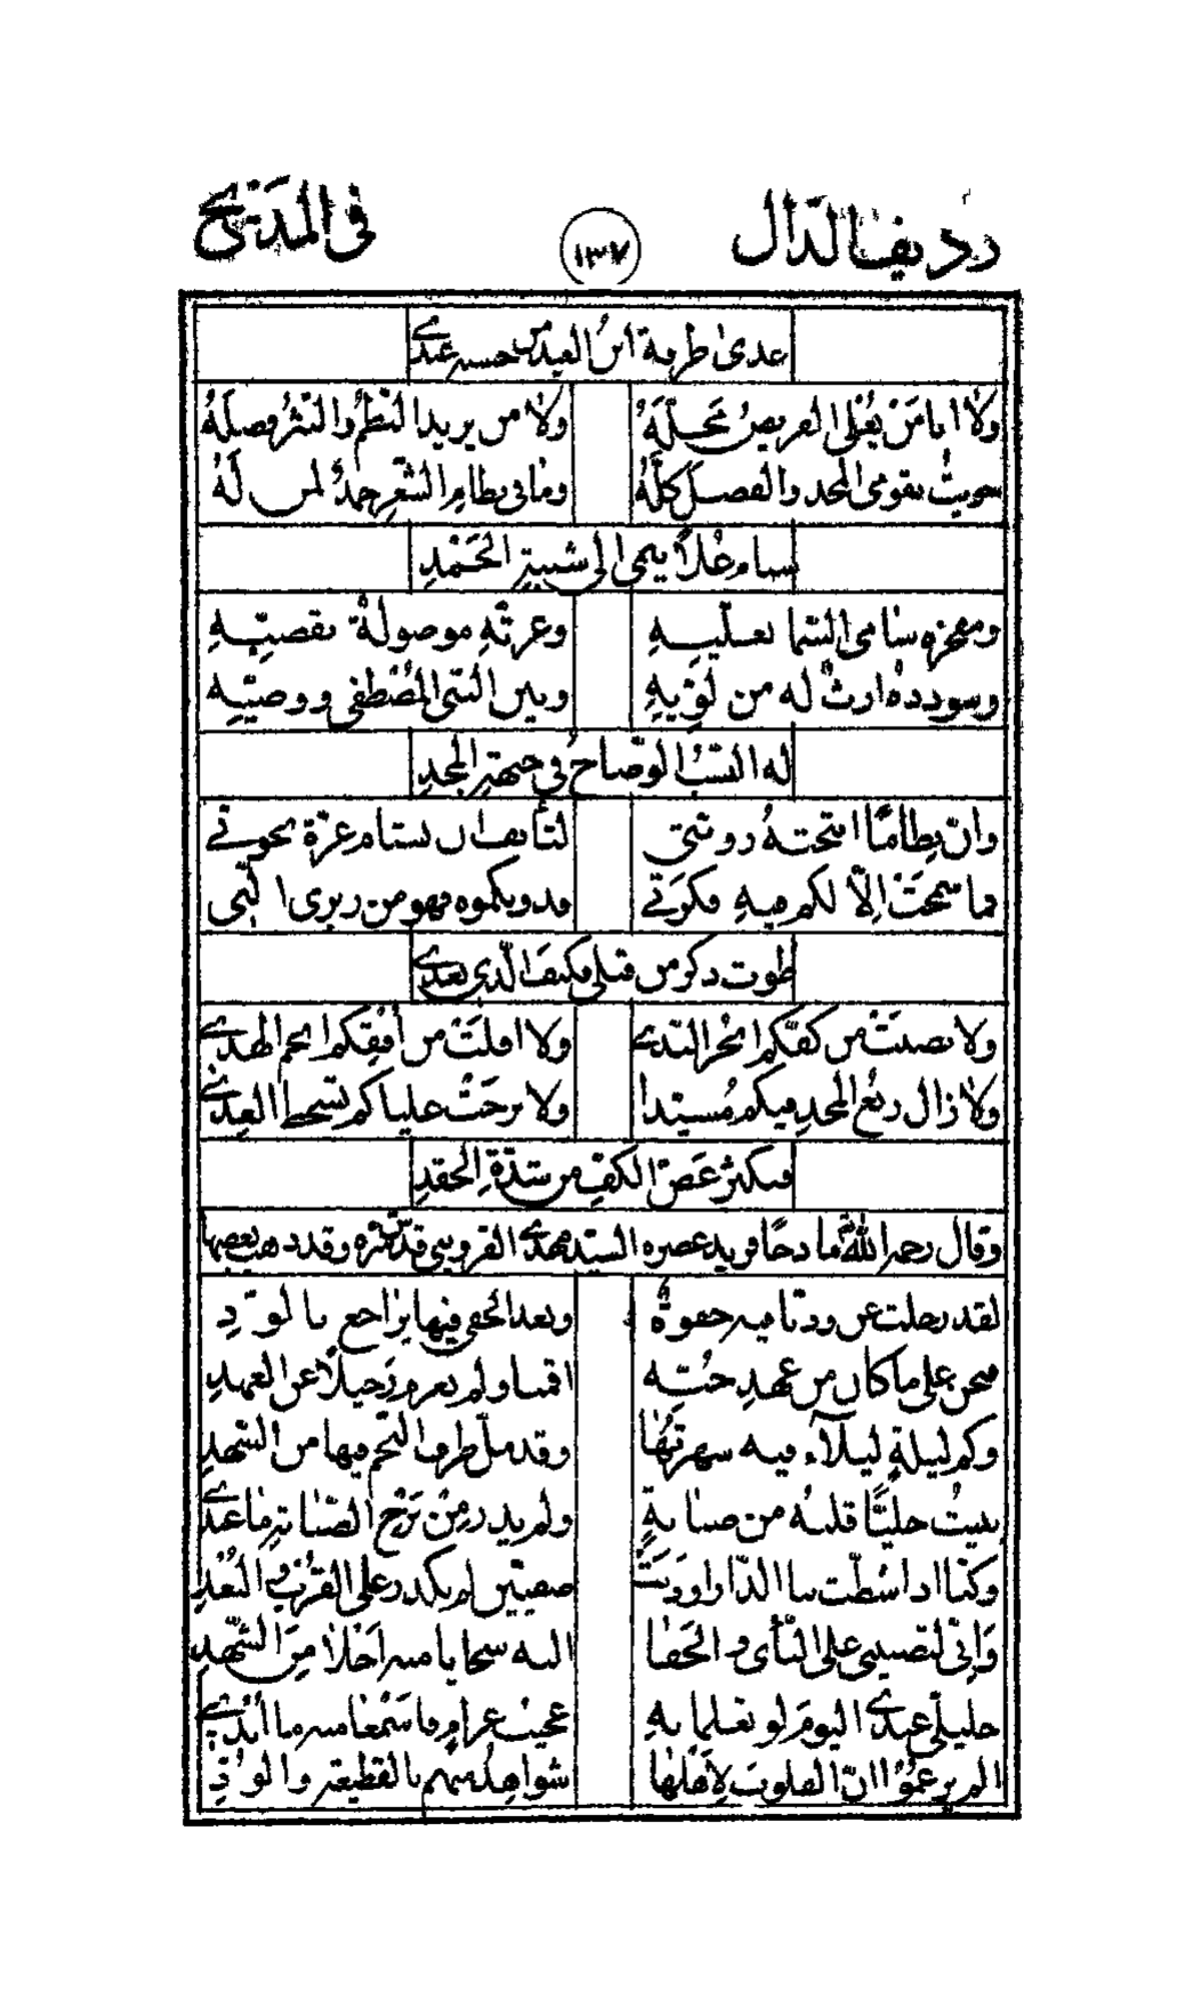 رديف الدال ١٣٧ في المديح
غدى طرفة ابن العبد من حسنه عبدي
ولا انا من يُعْلى القريض محلّهُ ولا من يريد النظمُ والنثرُ فضلَهُ
حويتُ بقومي المجد والفضل كلَّهُ وما في نظام الشعرِ حمدٌ لمن لَهُ
سنام عُلاً ينمى الى شيبةِ الحَمْدِ
ومفخره سامي السما بعليّهِ وعزّتهِ موصولةٌ بقصيّهِ
وسودده ارثٌ له من لؤيّهِ وبين النبي المُصْطفى ووصيّهِ
له النسبُ الوضّاحُ في جبهةِ المجدِ
وانّ نظامًا انتحتهُ رويّتي لتأنف ان تستام عزّة نخوتي
فما سمحَتْ الّا لكم فيهِ فكرَتي فدونكموه فهو من زبرى الّتي
طوت ذكر من قبلي فكيفَ الّذي بعدي
ولا نضبَتْ من كفّكم ابحر الندى ولا افلَتْ من أفقِكم انجم الهدى
ولا زال ربعُ المجدِ فيكم مُشيّدا ولا برحَتْ علياكم تسخط العِدى
فيكثر عَضّ الكفِ من شدّةِ الحقدِ
وقال رحمه الله مادحًا فريد عصره السيد مهدي القزويني قدّس سرّه وقد ذهب بعضها
لقد رحلت عن ودّنا ميه جفوةً وبعد الجفى فيها يُراجع بالودِّ
فنحن على ما كان من عهدِ حبّه اقمنا ولم نعرم رَحيلًا عن العهدِ
وكم ليلةٍ ليلآء فيه سهرتُها وقد ملّ طرف النجم فيها من السُّهدِ
يبيتُ خليًّا قلبُه من صبابةٍ ولم يدر مِنْ بَرْحِ الصّبابةِ ما عندي
وكنا اذا شطّت بنا الدّار اوْدَنَتْ صفيّين لم نكدر على القُرْب والبُعْدِ
وَانّي لتصبيني على النّأى والجفا اليه سجايا منه احْلا مِنَ الشّهْدِ
خليليّ عندي اليومَ لو تعلما به عجيبُ غرامٍ ما سَمعْنا منه ما اُبْدي
الم يزعموا انّ القلوبَ لِأهْلها شواهِدُ منهم بالقطيعة والودِّ